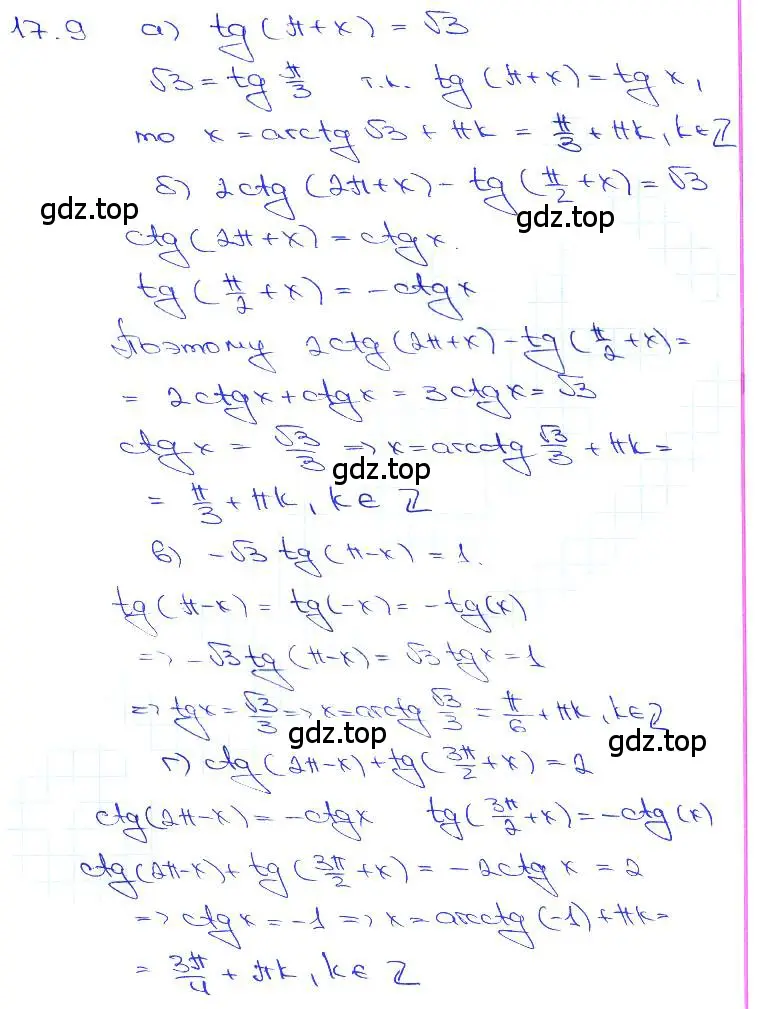 17.9 а) tg(π+x) = √3
√3 = tg π/3 т.к. tg(π+x) = tg x,
то x = arctg √3 + πk = π/3 + πk, k∈Z
б) 2ctg(2π+x) - tg(π/2+x) = √3
gdz.top
gdz.top
ctg(2π+x) = ctg x.
tg(π/2+x) = -ctg x
Поэтому 2ctg(2π+x) - tg(π/2+x) =
= 2ctg x + ctg x = 3ctg x = √3
ctg x = √3/3 => x = arcctg √3/3 + πk =
gdz.top
= π/3 + πk, k∈Z
в) -√3 tg(π-x) = 1.
tg(π-x) = tg(-x) = -tg(x)
=> -√3 tg(π-x) = √3 tg x = 1
=> tg x = √3/3 => x = arctg √3/3 = π/6 + πk, k∈Z
gdz.top
gdz.top
г) ctg(2π-x) + tg(3π/2+x) = 2
ctg(2π-x) = -ctg x tg(3π/2+x) = -ctg(x)
ctg(2π-x) + tg(3π/2+x) = -2ctg x = 2
=> ctg x = -1 => x = arcctg(-1) + πk =
= 3π/4 + πk, k∈Z